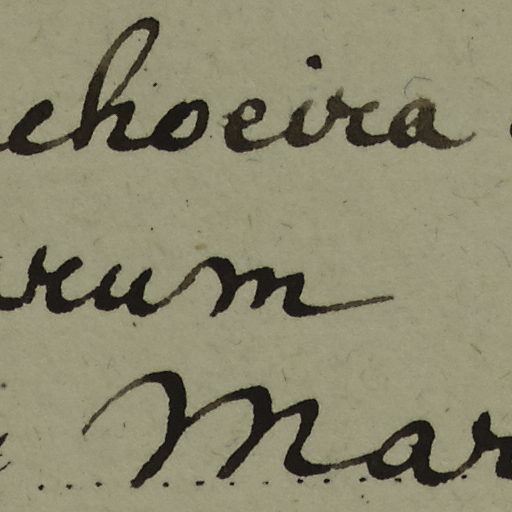 choeira
arum
Mar